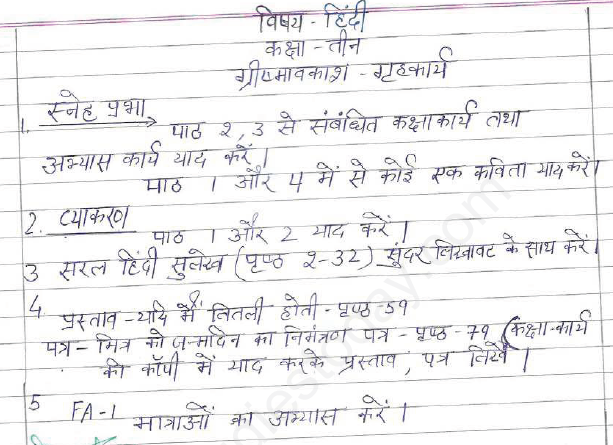 विषय - हिंदी
कक्षा - तीन
ग्रीष्मावकाश - गृहकार्य
1. स्नेह प्रभा
पाठ २, 3 से संबंधित कक्षाकार्य तथा
अभ्यास कार्य याद करें।
पाठ 1 और 4 में से कोई एक कविता याद करें।
2. व्याकरण
पाठ 1 और 2 याद करें।
3 सरल हिंदी सुलेख (पृष्ठ २-32) सुंदर लिखावट के साथ करें।
4 प्रस्ताव - यदि मैं तितली होती - पृष्ठ - 59
पत्र - मित्र को जन्मदिन का निमंत्रण पत्र - पृष्ठ - 79 (कक्षा-कार्य
की कॉपी में याद करके प्रस्ताव, पत्र लिखें।
5 FA-1 मात्राओं का अभ्यास करें।